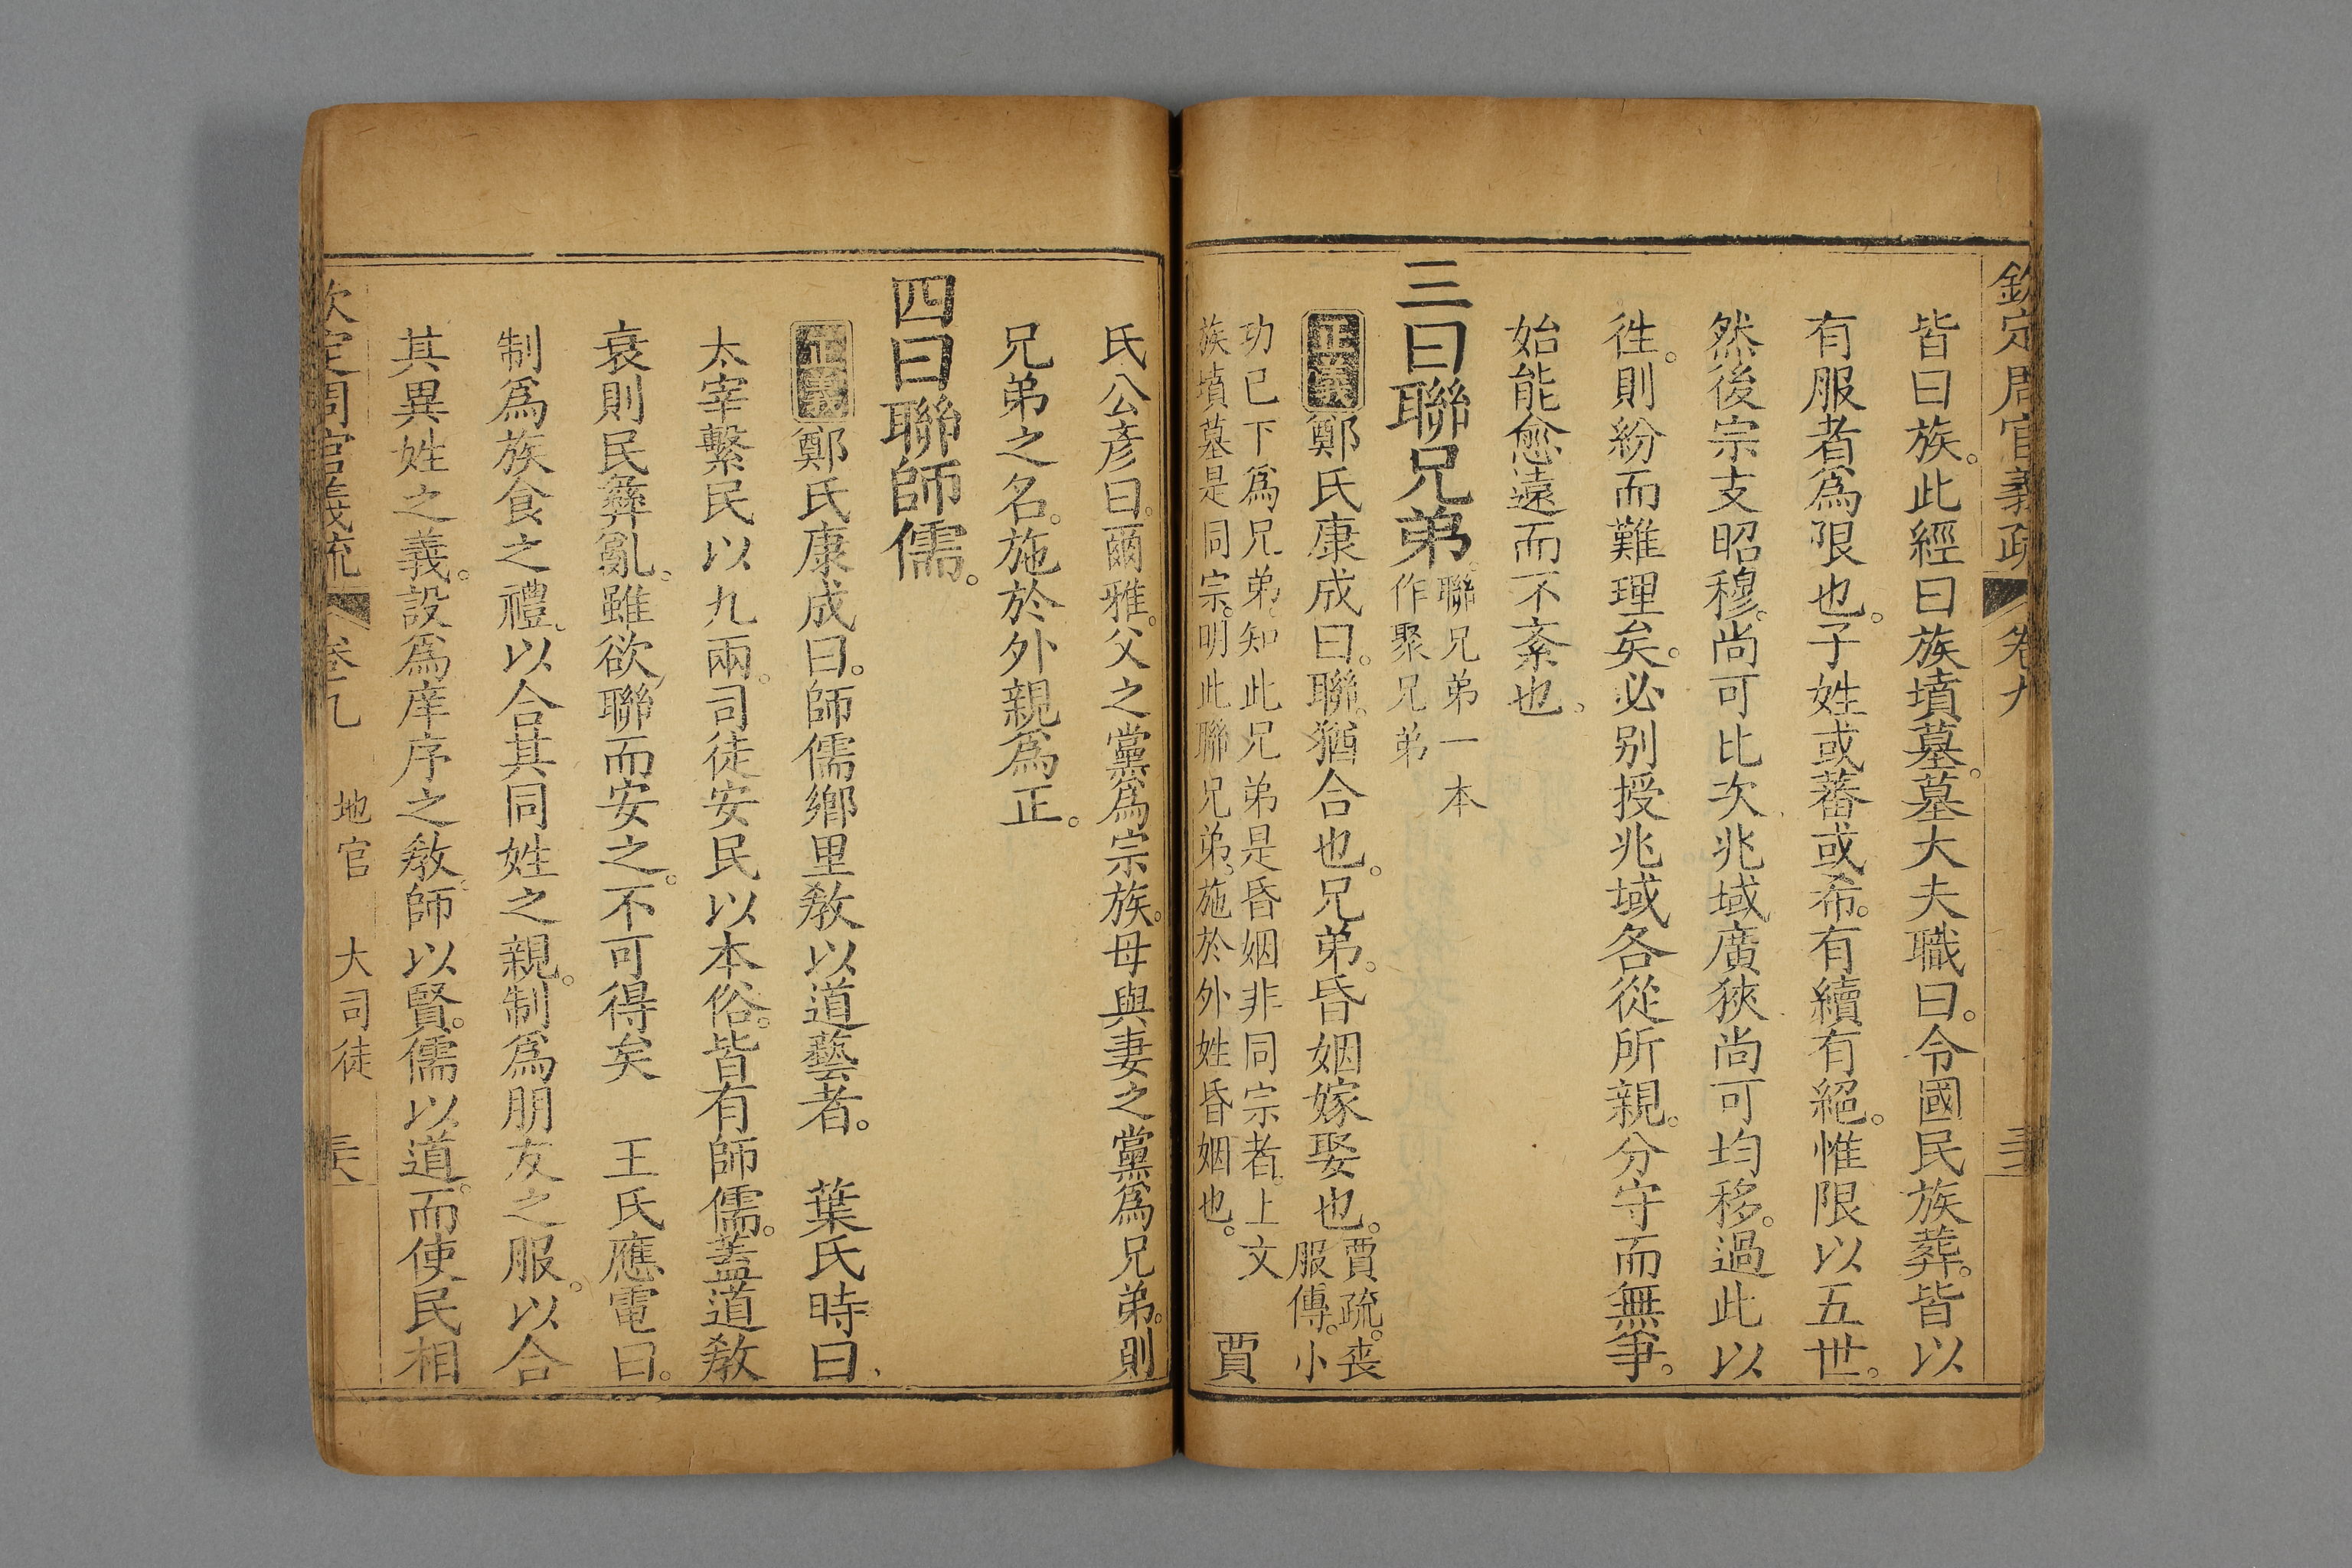 欽定周官義疏 卷九
皆曰族。此經曰族墳墓。墓大夫職曰。令國民族葬。皆以
有服者為限也。子姓或蕃或希。有續有絕。惟限以五世。
然後宗支昭穆。尚可比次。兆域廣狹。尚可均移。過此以
徃。則紛而難理矣。必別授兆域。各從所親。分守而無爭。
始能愈遠而不紊也。
三曰聯兄弟。聯兄弟一本
作聚兄弟
正義鄭氏康成曰。聯。猶合也。兄弟。昏姻嫁娶也。賈疏。喪
服傳。小
功已下為兄弟。知此兄弟是昏姻非同宗者。上文
族墳墓是同宗。明此聯兄弟。施於外姓昏姻也。
賈
氏公彥曰。爾雅。父之黨為宗族。母與妻之黨為兄弟。則
兄弟之名。施於外親為正。
四曰聯師儒。
正義鄭氏康成曰。師儒鄉里敎以道藝者。 葉氏時曰、
太宰繫民以九兩。司徒安民以本俗。皆有師儒。蓋道敎
衰則民彝亂。雖欲聯而安之。不可得矣 王氏應電曰。
制為族食之禮、以合其同姓之親。制為朋友之服。以合
其異姓之義。設為庠序之敎。師以賢。儒以道。而使民相
欽定周官義疏 卷九 地官 大司徒